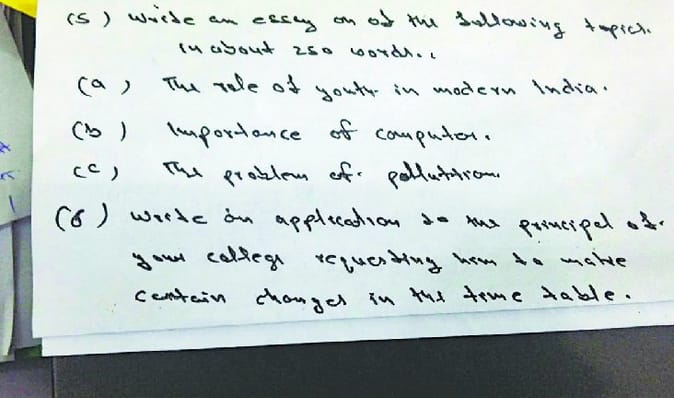 (5) Write an essay on of the following topics.
in about 250 words..
(a) The role of youth in modern India.
(b) Importance of computer.
(c) The problem of. pollution.
(6) Write an application to the principal of.
your college requesting him to make
certain changes in the time table.